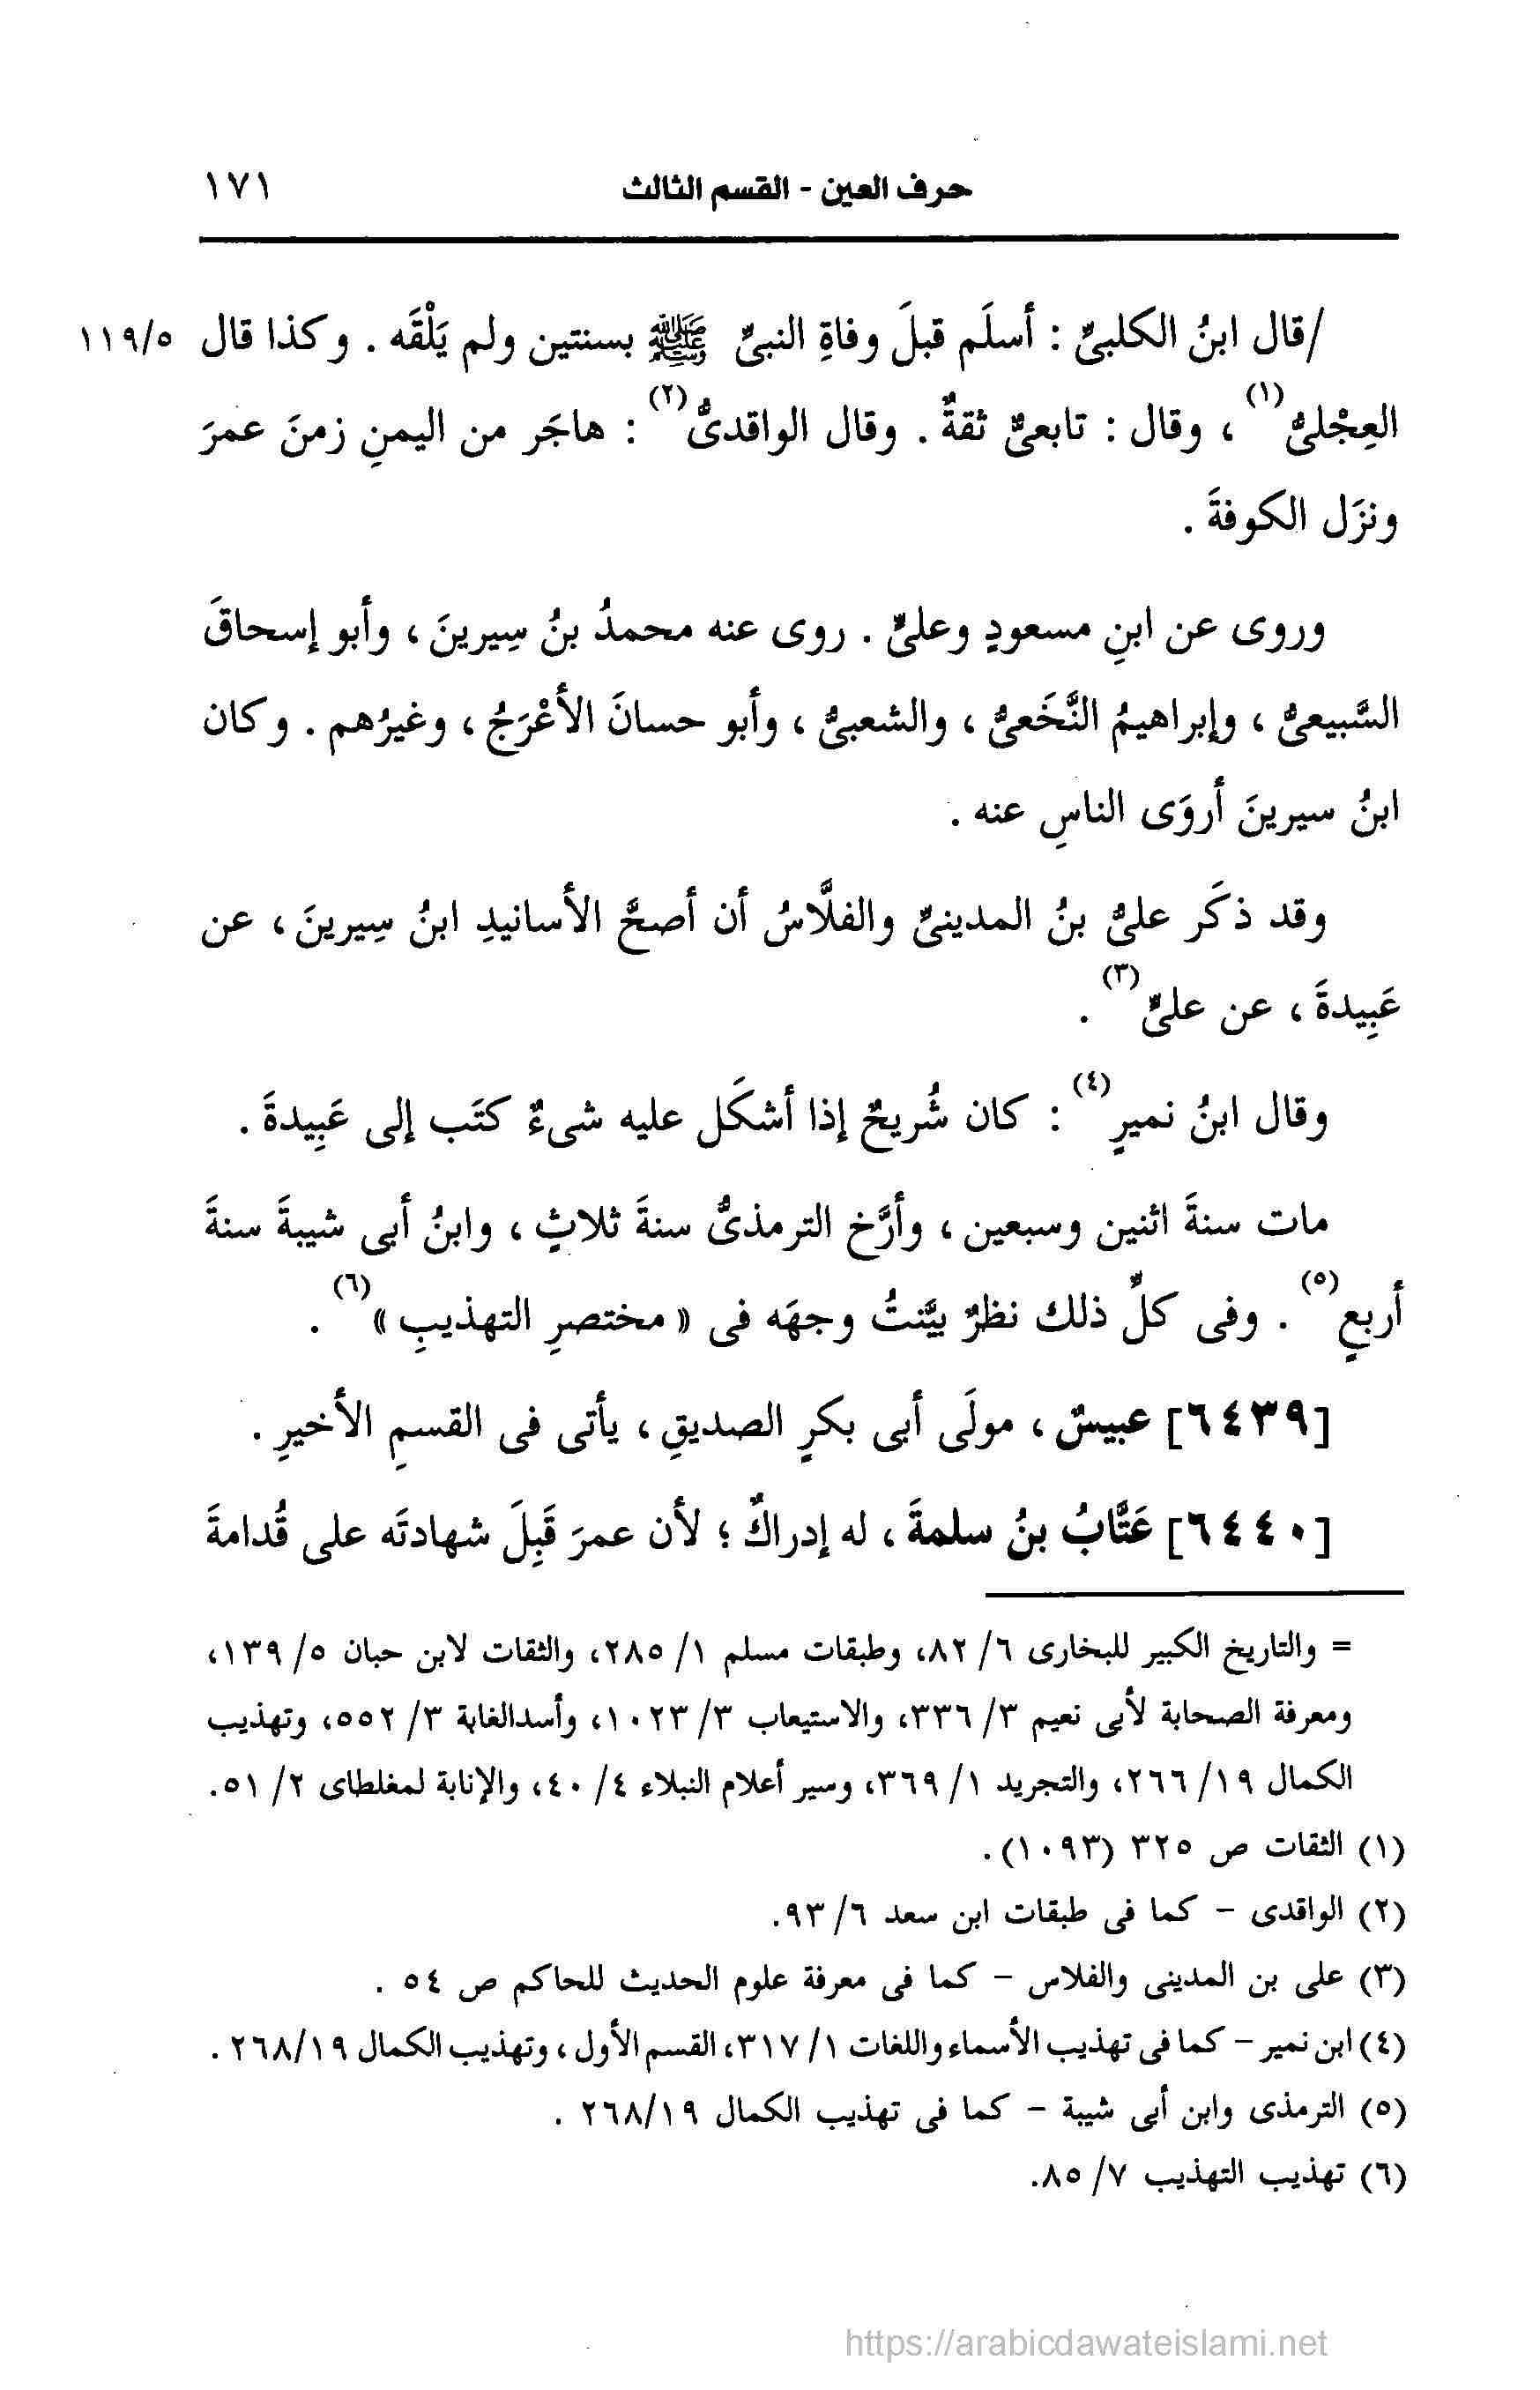 حرف العين - القسم الثالث ١٧١
/قال ابنُ الكلبىِّ : أسلَم قبلَ وفاةِ النبىِّ ﷺ بسنتين ولم يَلْقَه . وكذا قال ١١٩/٥
العِجْلىُّ(١) ، وقال : تابعىٌّ ثقةٌ . وقال الواقدىُّ(٢) : هاجَر من اليمنِ زمنَ عمرَ
ونزَل الكوفةَ .
وروى عن ابنِ مسعودٍ وعلىٍّ . روى عنه محمدُ بنُ سِيرينَ ، وأبو إسحاقَ
السَّبيعىُّ ، وإبراهيمُ النَّخَعىُّ ، والشعبىُّ ، وأبو حسانَ الأعْرَجُ ، وغيرُهم . وكان
ابنُ سيرينَ أروَى الناسِ عنه .
وقد ذكَر علىُّ بنُ المدينىِّ والفلَّاسُ أن أصحَّ الأسانيدِ ابنُ سِيرينَ ، عن
عَبِيدةَ ، عن علىٍّ(٣) .
وقال ابنُ نميرٍ(٤) : كان شُريحٌ إذا أشكَل عليه شىءٌ كتَب إلى عَبِيدةَ .
مات سنةَ اثنين وسبعين ، وأرَّخ الترمذىُّ سنةَ ثلاثٍ ، وابنُ أبى شيبةَ سنةَ
أربعٍ(٥) . وفى كلِّ ذلك نظرٌ بيَّنتُ وجهَه فى « مختصرِ التهذيبِ »(٦) .
[٦٤٣٩] عبيسٌ ، مولَى أبى بكرٍ الصديقِ ، يأتى فى القسمِ الأخيرِ .
[٦٤٤٠] عَتَّابُ بنُ سلمةَ ، له إدراكٌ ؛ لأن عمرَ قَبِلَ شهادتَه على قُدامةَ
= والتاريخ الكبير للبخارى ٦/ ٨٢، وطبقات مسلم ١/ ٢٨٥، والثقات لابن حبان ٥/ ١٣٩،
ومعرفة الصحابة لأبى نعيم ٣/ ٣٣٦، والاستيعاب ٣/ ١٠٢٣، وأسدالغابة ٣/ ٥٥٢، وتهذيب
الكمال ١٩/ ٢٦٦، والتجريد ١/ ٣٦٩، وسير أعلام النبلاء ٤/ ٤٠، والإنابة لمغلطاى ٢/ ٥١.
(١) الثقات ص ٣٢٥ (١٠٩٣).
(٢) الواقدى - كما فى طبقات ابن سعد ٦/ ٩٣.
(٣) على بن المدينى والفلاس - كما فى معرفة علوم الحديث للحاكم ص ٥٤ .
(٤) ابن نمير - كما فى تهذيب الأسماء واللغات ١/ ٣١٧، القسم الأول ، وتهذيب الكمال ٢٦٨/١٩ .
(٥) الترمذى وابن أبى شيبة - كما فى تهذيب الكمال ٢٦٨/١٩ .
(٦) تهذيب التهذيب ٧/ ٨٥.
https://arabicdawateislami.net